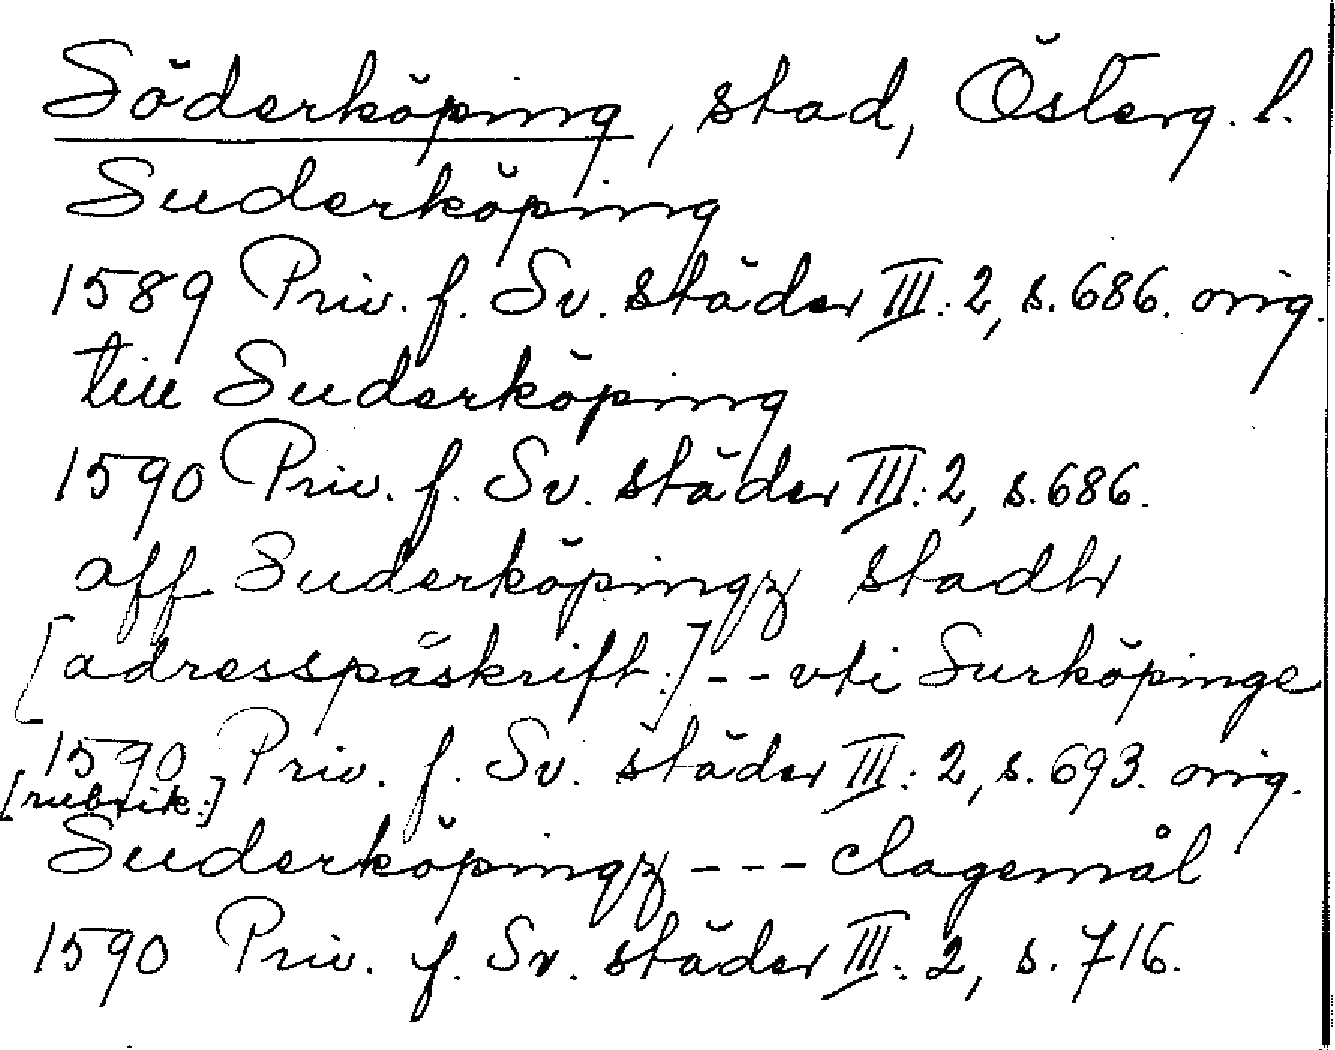 Söderköping, stad, Österg. l.
Suderköping
1589 Priv. f. Sv. städer III: 2, s. 686. orig.
till Suderköping
1590 Priv. f. Sv. städer III: 2, s. 686.
aff Suderköpingz stadh
[adresspåskrift:] -- vti Surköpinge
1590 Priv. f. Sv. städer III: 2, s. 693. orig.
[rubrik:]
Suderköpingz --- clagemål
1590 Priv. f. Sv. städer III: 2, s. 716.